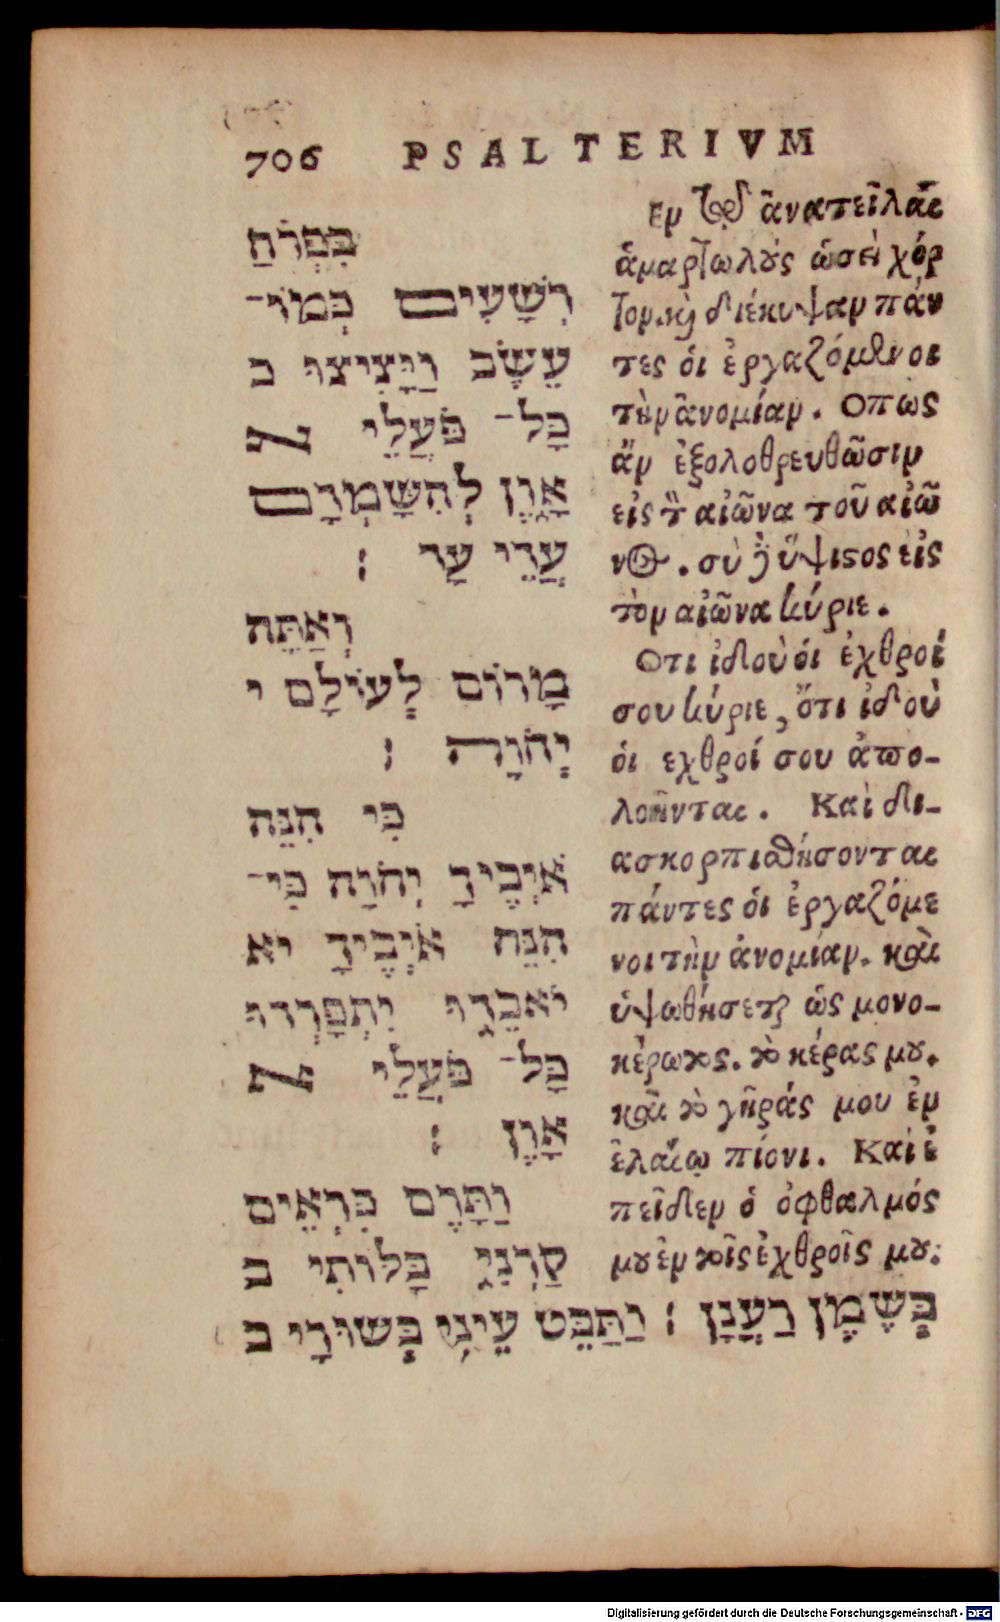 706 PSALTERIVM
בִּפְרֹחַ
רְשָׁעִים כְּמוֹ־
עֵשֶׂב וַיָּצִיצוּ כ
כָּל־ פֹּעֲלֵי א
אָוֶן לְהִשָּׁמְדָם
עֲדֵי עַד ׃
וְאַתָּה
מָרוֹם לְעוֹלָם י
יְהוָה ׃
כִּי הִנֵּה
אֹיְבֶיךָ יְהוָה כִּי־
הִנֵּה אֹיְבֶיךָ יֹא
יֹאבֵדוּ יִתְפָּרְדוּ
כָּל־ פֹּעֲלֵי א
אָוֶן ׃
וַתָּרֶם כִּרְאֵים
קַרְנִי בָּלּוֹתִי ב
בְּשֶׁמֶן רַעֲנָן ׃ וַתַּבֵּט עֵינִי בְּשׁוּרָי ב
Εν τῷ ἀνατεῖλαι
ἁμαρτωλοὺς ὡσεὶ χόρ
τον. καὶ διέκυψαν πάν
τες ὁι ἐργαζόμενοι
τὴν ἀνομίαν. Οπως
ἄν ἐξολοθρευθῶσιν
εἰς τὸν αἰῶνα τοῦ αἰῶ
νος. σὺ δὲ ὕψιστος εἰς
τὸν αἰῶνα κύριε.
Οτι ἰδοὺ ὁι ἐχθροί
σου κύριε, ὅτι ἰδοὺ
ὁι εχθροί σου ἀπο-
λοῦνται. Καὶ δι-
ασκορπιθήσονται
πάντες ὁι ἐργαζόμε
νοι τὴν ἀνομίαν. καὶ
ὑψωθήσεται ὡς μονο-
κέρωτος. τὸ κέρας μου.
καὶ τὸ γῆράς μου ἐν
ἐλαίῳ πίονι. Καὶ ἐ
πεῖδεν ὁ ὀφθαλμός
μου ἐν τοῖς ἐχθροῖς μου.
Digitalisierung gefördert durch die Deutsche Forschungsgemeinschaft - DFG